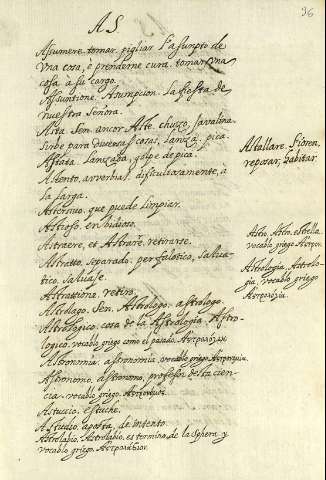 AS.
96
Assumere. tomar. pigliar l'asunpto de
vna cosa, ò prenderne cura. tomar vna
cosa à su cargo.
Assuntione. Asumpcion. la fiesta de
nuestra señora.
Asta. Sen. ancor Aste. chuzo. Iavalina.
sirbe para diuersas cosas, lanza. pica.
Astata. lanzada, golpe de pica.
A stento. avverbial. dificultosamente, a
la larga.
que puede limpiar.
Astioso. enbidioso.
Astraere, et Astrarre. retirarse.
Astratto. separado. per fantastico, saluatico.
saluase.
Astrattione. retiro.
Astrologo. Sen. Astrologo. astrologo.
Astrologico. cosa de la Astrologia. Astrologico.
vocablo griego como el pasado.
Astronomia. astronomia. vocablo griego.
Astronomo. astronomo, profesor de la ciencia.
vocablo griego.
Astuccio. estuche.
A studio. aposta, de intento.
Astrolabio. Astrolabio. es termino de la sphera y
vocablo griego.
Astallare.
reposar, habitar.
Astro. Astro. estrella.
vocablo griego
Astrologia. Astrologia,
vocablo griego